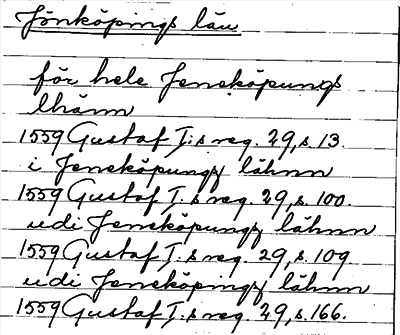 Jönköpings län
för hele Jeneköpungs
lhänn
1559 Gustaf I:s reg. 29, s. 13.
i Jeneköpungz lähnn
1559 Gustaf I.s reg. 29, s. 100.
udi Jeneköpungz lähnn
1559 Gustaf I.s reg. 29, s. 109
udi Jeneköpingz lähnn
1559 Gustaf I.s reg. 29, s. 166.